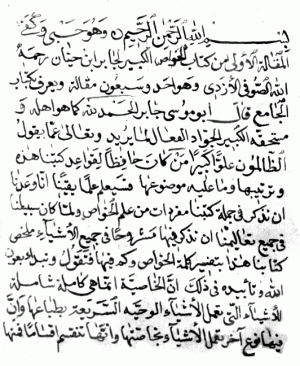 بسم الله الرحمن الرحيم وهو حسبي وكفى
المقالة الأولى من كتاب الخواص الكبير لجابر ابن حيان رحمه
الله الصوفي الأزدي وهو احد وسبعون مقالة ويعرف بكتاب
الجامع قال ابو موسى جابر الحمد لله كما هو اهله و
مستحقه الكبير الجواد الفعال لما يريد وتعالى عما يقول
الظالمون علوا كبيرا من كان حافظا لقواعد كتبنا هذه
وترتيبها وما عليه موضوعها فسيعلم علما يقينا انا وعدنا
ان نذكر في جملة كتبنا مفردات من علم الخواص ولما كان سبيلنا
في جميع تعاليمنا ان نذكر فيها شروحا في جميع الأشياء
كتابنا هذا بتفسير كلمة الخواص وكم فيها فنقول ونبدا بعون
الله وتأييده في ذلك ان الخاصية انما هي كاملة شاملة
للأشياء التي تعمل الأشياء الوحية السريعة بطباعها وان
فيها نوع آخر تعمل الأشياء بخاصتها وانها تنقسم اقساما فمنها